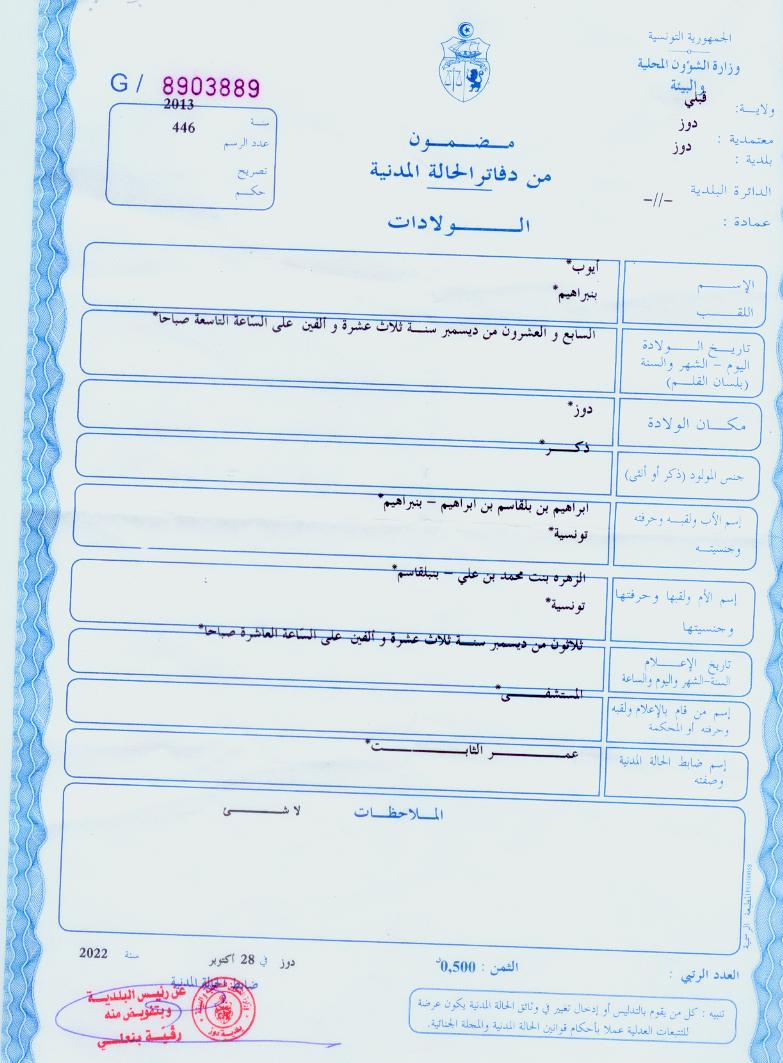 الجمهورية التونسية
وزارة الشؤون المحلية
والبيئة
ولاية: قبلي
معتمدية : دوز
بلدية : دوز
الدائرة البلدية
عمادة : -//-
G/ 8903889
سنة 2013
عدد الرسم 446
تصريح
حكم
مضمون
من دفاتر الحالة المدنية
الولادات
الإسم أيوب*
اللقب بنبراهيم*
تاريخ الولادة
اليوم - الشهر والسنة
(بلسان القلم)
السابع و العشرون من ديسمبر سنة ثلاث عشرة و ألفين على الساعة التاسعة صباحا*
مكان الولادة دوز*
جنس المولود (ذكر أو أنثى) ذكر*
إسم الأب ولقبه وحرفته
وجنسيته
ابراهيم بن بلقاسم بن ابراهيم - بنبراهيم*
تونسية*
إسم الأم ولقبها وحرفتها
وجنسيتها
الزهره بنت محمد بن علي - بنبلقاسم*
تونسية*
تاريخ الإعلام
السنة-الشهر واليوم والساعة
ثلاثون من ديسمبر سنة ثلاث عشرة و ألفين على الساعة العاشرة صباحا*
إسم من قام بالإعلام ولقبه
وحرفته أو المحكمة
المستشفى*
إسم ضابط الحالة المدنية
وصفته
عمر الثابت*
الملاحظات لا شئ
المطبعة الرسمية
العدد الرتبي :
الثمن : 0,500د
دوز في 28 أكتوبر سنة 2022
ضابط الحالة المدنية
عن رئيس البلدية
وبتفويض منه
رقية بنعلي
بلدية دوز
تنبيه : كل من يقوم بالتدليس أو إدخال تغيير في وثائق الحالة المدنية يكون عرضة
للتتبعات العدلية عملا بأحكام قوانين الحالة المدنية والمجلة الجنائية.